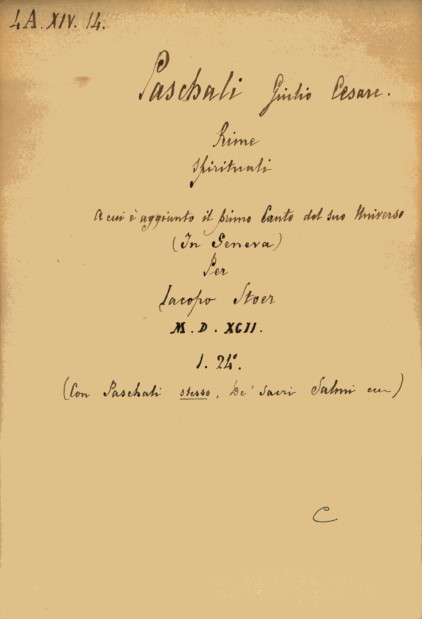 4A. XIV. 14.
Paschali Giulio Cesare.
Rime
spirituali
A cui è aggiunto il primo Canto del suo Universo
(In Geneva)
Per
Iacopo Stoer
M. D. XCII.
1. 24°.
(Con Paschali stesso, De' Sacri Salmi)
C